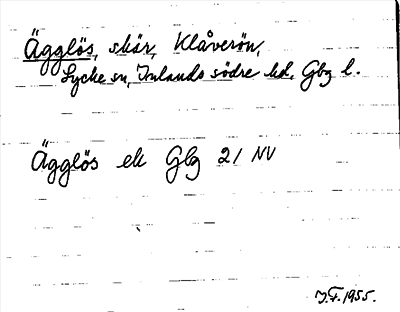 Ägglös, skär, Klåverön,
Lycke sn, Inlands södre hd, Gbg l.
Ägglös ek Gbg 21 NV
J.F. 1955.